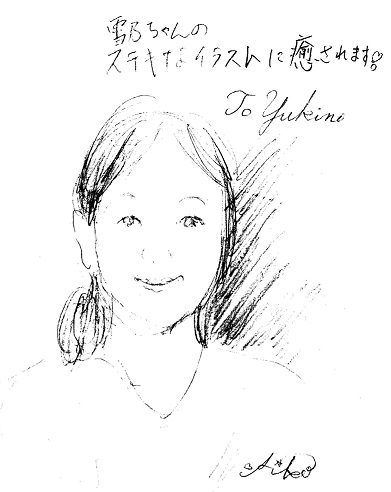 雪乃ちゃんの
ステキなイラストに癒されます
To Yukino